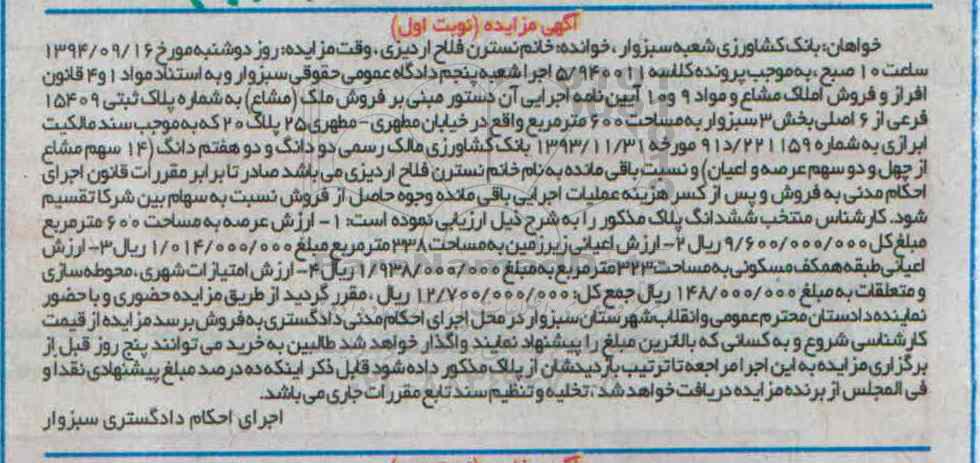 آگهی مزایده (نوبت اول)
خواهان: بانک کشاورزی شعبه سبزوار ، خوانده: خانم نسترن فلاح اردیزی ، وقت مزایده: روز دوشنبه مورخ ۱۳۹۴/۰۹/۱۶
ساعت ۱۰ صبح ، به موجب پرونده کلاسه ۵/۹۴۰۰۱۱ اجرا شعبه پنجم دادگاه عمومی حقوقی سبزوار و به استناد مواد ۱ و ۴ قانون
افراز و فروش املاک مشاع و مواد ۹ و ۱۰ آیین نامه اجرایی آن دستور مبنی بر فروش ملک (مشاع) به شماره پلاک ثبتی ۱۵۴۰۹
فرعی از ۶ اصلی بخش ۳ سبزوار به مساحت ۶۰۰ مترمربع واقع در خیابان مطهری - مطهری ۲۵ پلاک ۲۰ که به موجب سند مالکیت
ابرازی به شماره ۲۲۱۱۵۹/د۹۱ مورخه ۱۳۹۳/۱۱/۳۱ بانک کشاورزی مالک رسمی دو دانگ و دو هفتم دانگ (۱۴ سهم مشاع
از چهل و دو سهم عرصه و اعیان) و نسبت باقی مانده به نام خانم نسترن فلاح اردیزی می باشد صادر تا برابر مقررات قانون اجرای
احکام مدنی به فروش و پس از کسر هزینه عملیات اجرایی باقی مانده وجوه حاصل از فروش نسبت به سهام بین شرکا تقسیم
شود. کارشناس منتخب ششدانگ پلاک مذکور را به شرح ذیل ارزیابی نموده است: ۱- ارزش عرصه به مساحت ۶۰۰ مترمربع
مبلغ کل ۹/۶۰۰/۰۰۰/۰۰۰ ریال ۲- ارزش اعیانی زیرزمین به مساحت ۳۳۸ مترمربع مبلغ ۱/۰۱۴/۰۰۰/۰۰۰ ریال ۳- ارزش
اعیانی طبقه همکف مسکونی به مساحت ۳۲۳ مترمربع به مبلغ ۱/۹۳۸/۰۰۰/۰۰۰ ریال ۴- ارزش امتیازات شهری ، محوطه سازی
و متعلقات به مبلغ ۱۴۸/۰۰۰/۰۰۰ ریال جمع کل: ۱۲/۷۰۰/۰۰۰/۰۰۰ ریال ، مقرر گردید از طریق مزایده حضوری و با حضور
نماینده دادستان محترم عمومی و انقلاب شهرستان سبزوار در محل اجرای احکام مدنی دادگستری به فروش برسد مزایده از قیمت
کارشناسی شروع و به کسانی که بالاترین مبلغ را پیشنهاد نمایند واگذار خواهد شد طالبین به خرید می توانند پنج روز قبل از
برگزاری مزایده به این اجرا مراجعه تا ترتیب بازدیدشان از پلاک مذکور داده شود قابل ذکر اینکه ده درصد مبلغ پیشنهادی نقدا و
فی المجلس از برنده مزایده دریافت خواهد شد ، تخلیه و تنظیم سند تابع مقررات جاری می باشد.
اجرای احکام دادگستری سبزوار